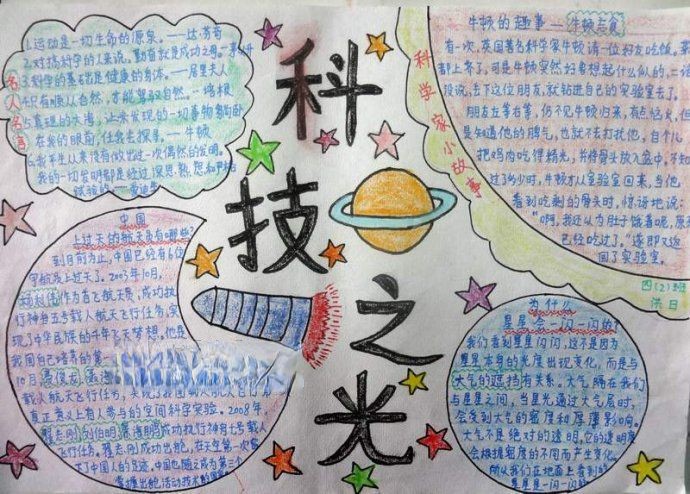 名人名言
1.运动是一切生命的源泉。——达·芬奇
2.对搞科学的人来说，勤奋就是成功之母。——茅以升
3.科学的基础是健康的身体。——居里夫人
4.只有顺从自然，才能驾驭自然。——培根
5.真理的大海，让未发现的一切事物躺卧
在我的眼前，任我去探寻。——牛顿
6.我平生从来没有做出过一次偶然的发明。
我的一切发明都是经过深思熟虑和严格
试验的
科技之光
科学家小故事
牛顿的趣事——牛顿忘食
有一次，英国著名科学家牛顿请一位妇友吃饭，菜
都上齐了，可是牛顿突然
没说，丢下这位朋友，就钻进自己的实验室去了。
朋友左等右等，仍不见牛顿归来，有点恼火，但
是知道他的脾气，也就不去打扰他，自个儿
把鸡肉吃得精光，并将骨头放入盘中，不知
过了多少时，牛顿才从实验室回来，当他
看到吃剩的骨头时，惊讶地说：
“啊，我还认为肚子饿着呢，原来
已经吃过了。”遂即又返
回了实验室。
四(2)班
洪日
中国
上过天的航天员有哪些?
到目前为止，中国已经有6位
宇航员上过天了。2003年10月，
杨利伟作为首飞航天员，成功执
行神舟五号载人航天飞行任务，实
现了中华民族的千年飞天梦想。他是
我国自己培养的第一
10月，聂俊龙
载人航天飞行任务，实现了我国载人航天自
真正意义上有人参与的空间科学实验。2008年，
翟志刚、刘伯明、景海鹏成功执行神舟七号载人
飞行任务。翟志刚成功出舱，在太空第一次留
下了中国人的足迹，中国也随之成为第三个
掌握出舱活动技术的国家
为什么
星星会一闪一闪的?
我们看到星星闪闪，这不是因为
星星本身的光度出现变化，而是与
大气的遮挡有关系。大气隔在我们
与星星之间，当星光通过大气层时，
会受到大气的密度和厚薄影响。
大气不是绝对的透明，它的透明度
会根据密度的不同而产生变化。
所以我们在地面上看到的
星星是一闪一闪的